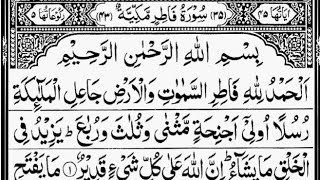 اٰیَاتُهَا ٤٥ (٣٥) سُوْرَةُ فَاطِرٍ مَّكِّیَّةٌ (٤٣) رُكُوْعَاتُهَا ٥
بِسْمِ اللّٰهِ الرَّحْمٰنِ الرَّحِیْمِ
اَلْحَمْدُ لِلّٰهِ فَاطِرِ السَّمٰوٰتِ وَالْاَرْضِ جَاعِلِ الْمَلٰٓئِكَةِ
رُسُلًا اُولِیْۤ اَجْنِحَةٍ مَّثْنٰی وَثُلٰثَ وَرُبٰعَ ؕ یَزِیْدُ فِی
الْخَلْقِ مَا یَشَآءُ ؕ اِنَّ اللّٰهَ عَلٰی كُلِّ شَیْءٍ قَدِیْرٌ ۝١ مَا یَفْتَحِ